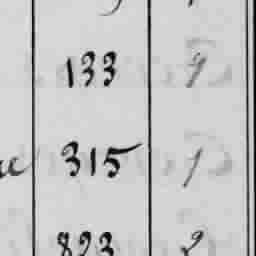 133 9
315 1
823 2